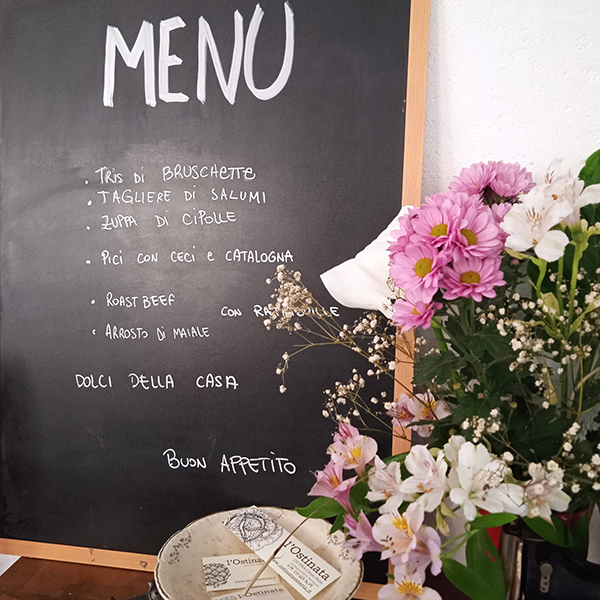 MENÙ
. TRIS DI BRUSCHETTE
. TAGLIERE DI SALUMI
. ZUPPA DI CIPOLLE
. PICI CON CECI E CATALOGNA
. ROAST BEEF
CON
. ARROSTO DI MAIALE
DOLCI DELLA CASA
BUON APPETITO
l'Ostinata
l'Ostinata